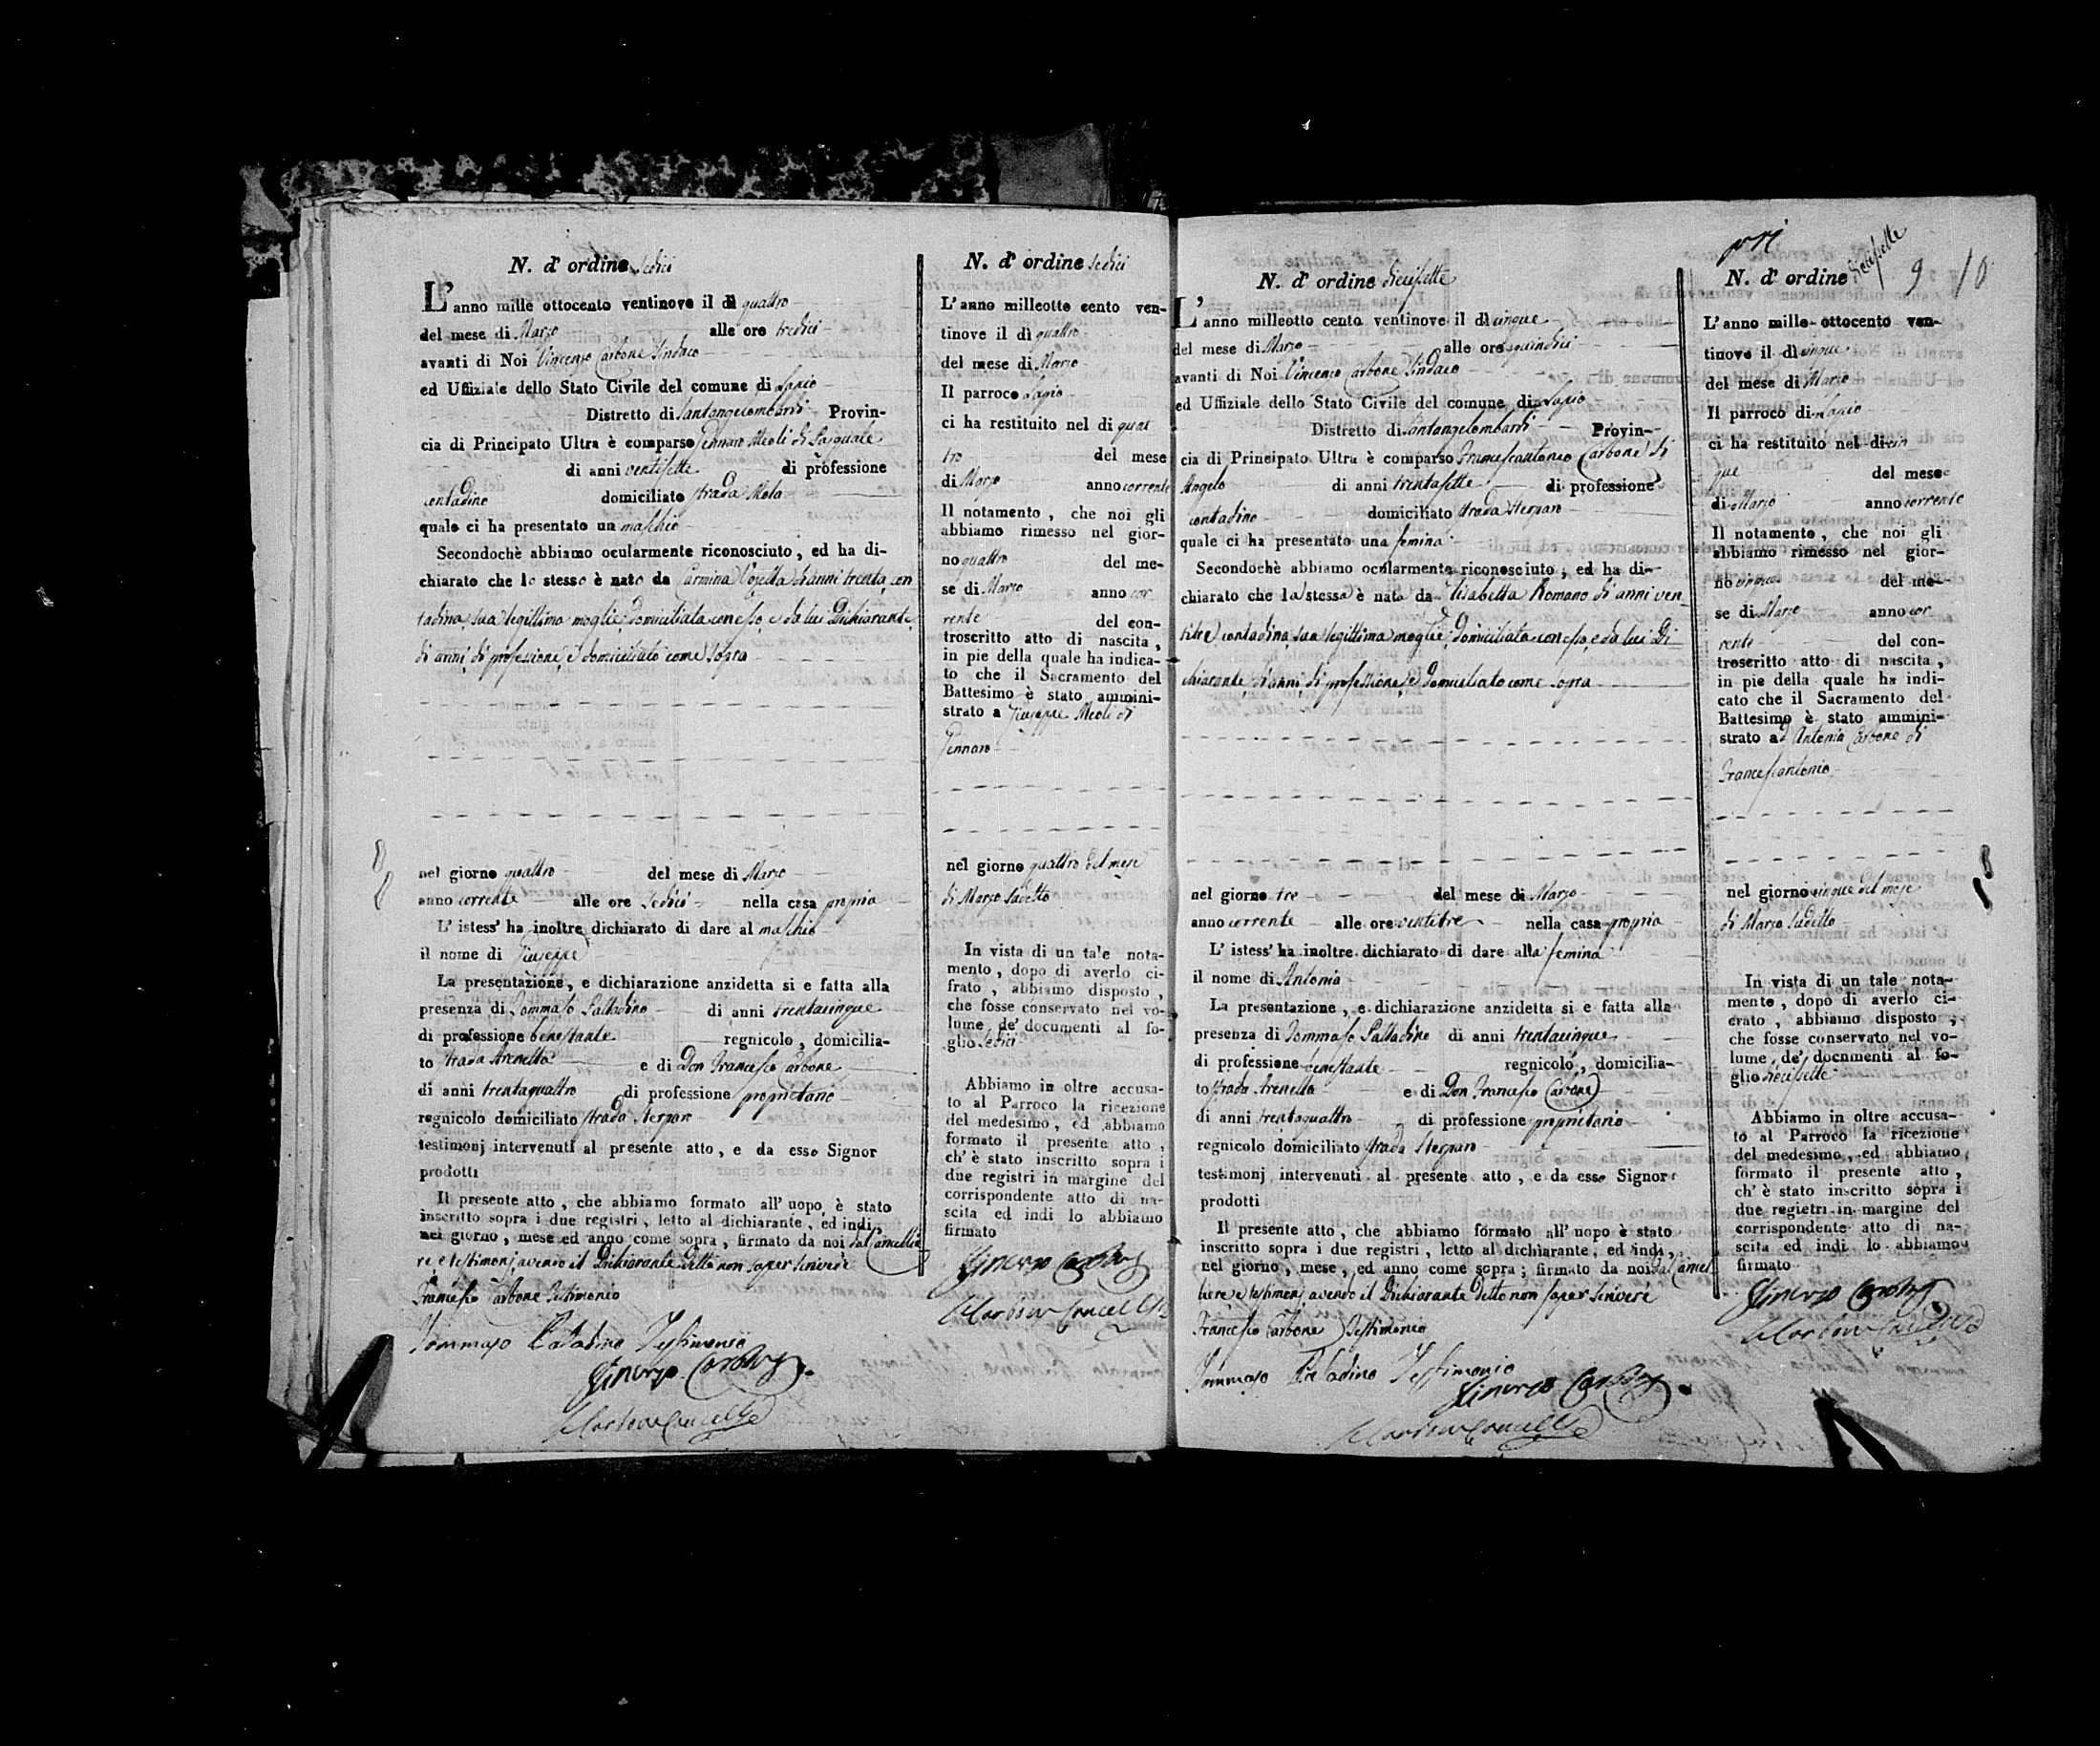 N. d' ordine sedici
L' anno mille ottocento ventinove il dì quattro
del mese di Marzo alle ore tredici
avanti di Noi Vincenzo Carbone Sindaco
ed Uffiziale dello Stato Civile del comune di Lapio
Distretto di Santangelombardi Provin-
cia di Principato Ultra è comparso Gennaro Meoli di Pasquale
di anni ventisette di professione
contadino domiciliato strada Mola
quale ci ha presentato un maschio
Secondochè abbiamo ocularmente riconosciuto, ed ha di-
chiarato che lo stesso è nato da Carmina di anni trenta, con
tadina, sua legittima moglie, domiciliata con esso, e da lui Dichiarante,
di anni, di professione, e domiciliato come sopra
nel giorno quattro del mese di Marzo
anno corrente alle ore sedici nella casa propria
L' istess' ha inoltre dichiarato di dare al maschio
il nome di Giuseppe
La presentazione, e dichiarazione anzidetta si e fatta alla
presenza di Tommaso Palladino di anni trentacinque
di professione benestante regnicolo, domicilia-
to strada Arenella e di Don Francesco Carbone
di anni trentaquattro di professione proprietario
regnicolo domiciliato strada Sterparo
testimonj intervenuti al presente atto, e da esso Signor
prodotti
Il presente atto, che abbiamo formato all' uopo è stato
inscritto sopra i due registri, letto al dichiarante, ed indi,
nel giorno, mese ed anno come sopra, firmato da noi dal Cancellie
re, e testimonj avendo il Dichiarante detto non saper scrivere
Francesco Carbone Testimonio
Tommaso Paladino Testimonio
Vincenzo Carbone
N. d' ordine sedici
L' anno milleotto cento ven-
tinove il dì quattro
del mese di Marzo
Il parroco Lapio
ci ha restituito nel di quat
tro del mese
di Marzo anno corrente
Il notamento, che noi gli
abbiamo rimesso nel gior-
no quattro del me-
se di Marzo anno cor
rente del con-
troscritto atto di nascita,
in pie della quale ha indica-
to che il Sacramento del
Battesimo è stato ammini-
strato a Giuseppe Meoli di
Gennaro
nel giorno quattro del mese
di Marzo sudetto
In vista di un tale nota-
mento, dopo di averlo ci-
frato, abbiamo disposto,
che fosse conservato nel vo-
lume de' documenti al fo-
glio sedici
Abbiamo in oltre accusa-
to al Parroco la ricezione
del medesimo, ed abbiamo
formato il presente atto,
ch' è stato inscritto sopra i
due registri in margine del
corrispondente atto di na-
scita ed indi lo abbiamo
firmato
Vincenzo Carbone
N. d' ordine diecisette
L' anno milleotto cento ventinove il dì cinque
del mese di Marzo alle ore quindici
avanti di Noi Vincenzo Carbone Sindaco
ed Uffiziale dello Stato Civile del comune di Lapio
Distretto di Santangelombardi Provin-
cia di Principato Ultra è comparso Francescantonio Carbone di
Angelo di anni trentasette di professione
contadino domiciliato strada Sterparo
quale ci ha presentato una femina
Secondochè abbiamo ocularmente riconosciuto, ed ha di-
chiarato che la stessa è nata da Elisabetta Romano di anni ven
titre, contadina, sua legittima moglie, domiciliata con esso, e da lui Di
chiarante, di anni, di professione, e domiciliato come sopra
nel giorno tre del mese di Marzo
anno corrente alle ore ventitre nella casa propria
L' istess' ha inoltre dichiarato di dare alla femina
il nome di Antonia
La presentazione, e dichiarazione anzidetta si e fatta alla
presenza di Tommaso Palladino di anni trentacinque
di professione benestante regnicolo, domicilia-
to strada Arenella e di Don Francesco Carbone
di anni trentaquattro di professione proprietario
regnicolo domiciliato strada Sterparo
testimonj intervenuti al presente atto, e da esso Signor
prodotti
Il presente atto, che abbiamo formato all' uopo è stato
inscritto sopra i due registri, letto al dichiarante, ed indi,
nel giorno, mese, ed anno come sopra; firmato da noi dal Cancel
liere, e testimonj avendo il Dichiarante detto non saper scrivere
Francesco Carbone Testimonio
Tommaso Paladino Testimonio
Vincenzo Carbone
N. d' ordine diecisette
9 10
L' anno mille ottocento ven-
tinove il dì cinque
del mese di Marzo
Il parroco di Lapio
ci ha restituito nel di cin
que del mese
di Marzo anno corrente
Il notamento, che noi gli
abbiamo rimesso nel gior-
no cinque del me-
se di Marzo anno cor
rente del con-
troscritto atto di nascita,
in pie della quale ha indi-
cato che il Sacramento del
Battesimo è stato ammini-
strato ad Antonia Carbone di
Francescantonio
nel giorno cinque del mese
di Marzo sudetto
In vista di un tale nota-
mento, dopo di averlo ci-
crato, abbiamo disposto,
che fosse conservato nel vo-
lume de' documenti al fo-
glio diecisette
Abbiamo in oltre accusa-
to al Parroco la ricezione
del medesimo, ed abbiamo
formato il presente atto,
ch' è stato inscritto sopra i
due registri in margine del
corrispondente atto di na-
scita ed indi lo abbiamo
firmato
Vincenzo Carbone